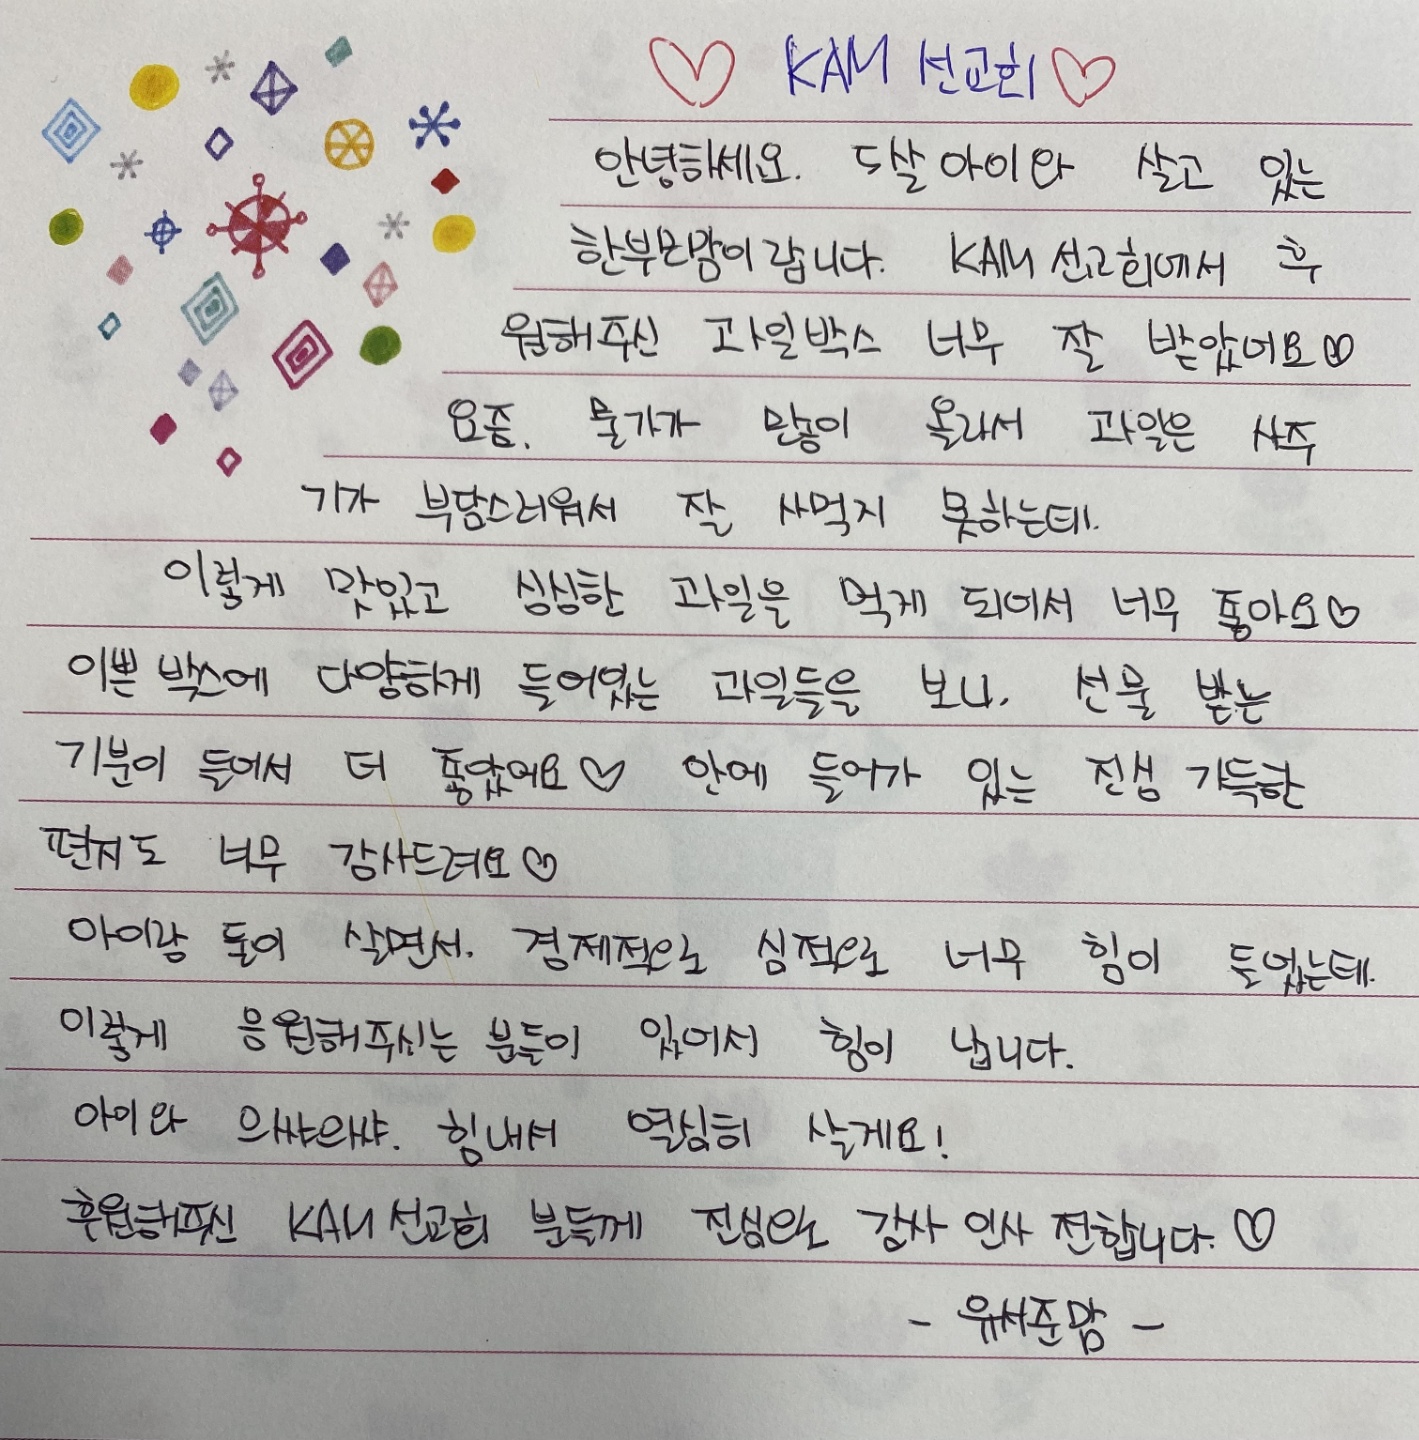 ♡ KAM 선교회 ♡
안녕하세요. 5살 아이와 살고 있는
한부모맘이랍니다. KAM 선교회에서 후
원해주신 과일박스 너무 잘 받았어요♡
요즘. 물가가 많이 올라서 과일은 사주
기가 부담스러워서 잘 사먹지 못하는데.
이렇게 맛있고 싱싱한 과일을 먹게 되어서 너무 좋아요♡
이쁜 박스에 다양하게 들어있는 과일들을 보니. 선물 받는
기분이 들어서 더 좋았어요♡ 안에 들어가 있는 진심 가득한
편지도 너무 감사드려요♡
아이랑 둘이 살면서. 경제적으로 심적으로 너무 힘이 들었는데.
이렇게 응원해주시는 분들이 있어서 힘이 납니다.
아이와 으쌰으쌰. 힘내서 열심히 살게요!
후원해주신 KAM 선교회 분들께 진심으로 감사 인사 전합니다. ♡
- 유서준맘 -